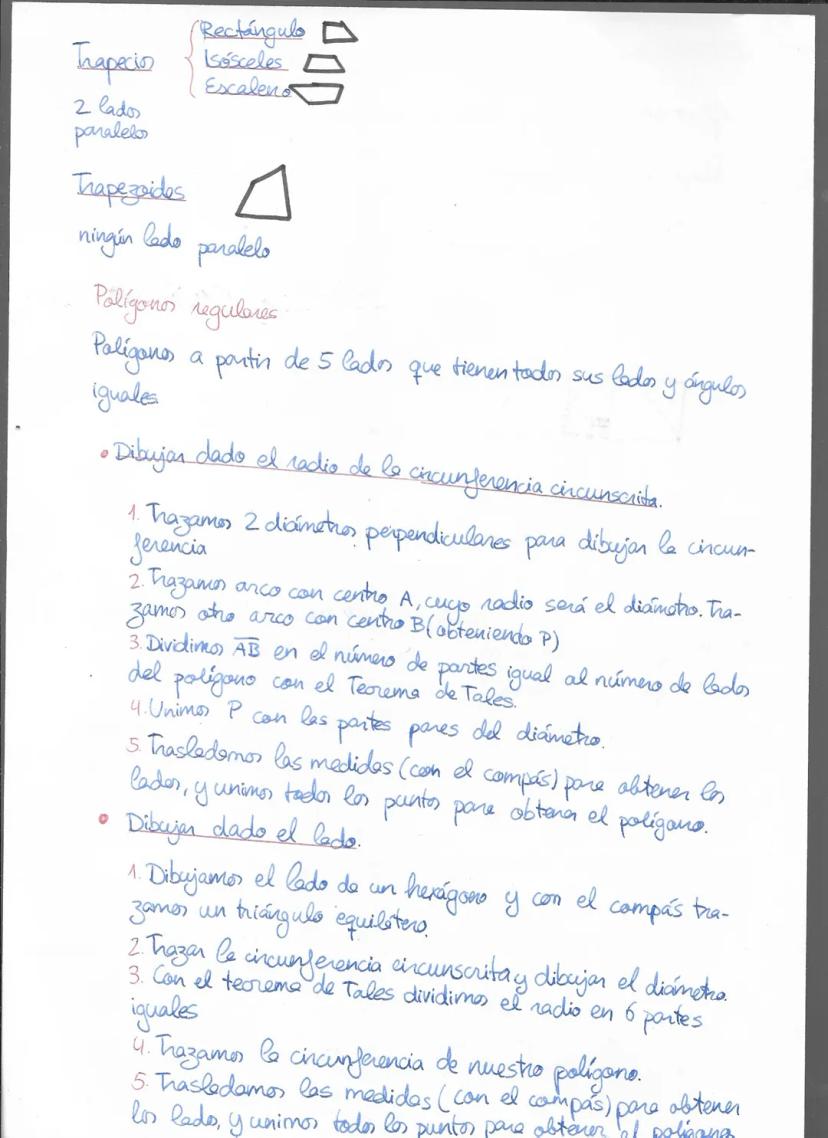 Trapecio
Rectángulo
Isósceles
Escaleno
2 lados
paralelos
Trapezoides
ningún lado paralelo
Polígonos regulares
Polígonos a partir de 5 lados que tienen todos sus lados y ángulos
iguales
• Dibujar dado el radio de la circunferencia circunscrita.
1. Trazamos 2 diámetros perpendiculares para dibujar la circun-
ferencia
2. Trazamos arco con centro A, cuyo radio será el diámetro. Tra-
zamos otro arco con centro B (obteniendo P)
3. Dividimos AB en el número de partes igual al número de lados
del polígono con el Teorema de Tales.
4. Unimos P con las partes pares del diámetro.
5. Trasladamos las medidas (con el compás) para obtener los
lados, y unimos todos los puntos para obtener el polígono.
• Dibujar dado el lado.
1. Dibujamos el lado de un hexágono y con el compás tra-
zamos un triángulo equilátero.
2. Trazar la circunferencia circunscrita y dibujar el diámetro.
3. Con el teorema de Tales dividimos el radio en 6 partes
iguales
4. Trazamos la circunferencia de nuestro polígono.
5. Trasladamos las medidas (con el compás) para obtener
los lados, y unimos todos los puntos para obtener el polígono